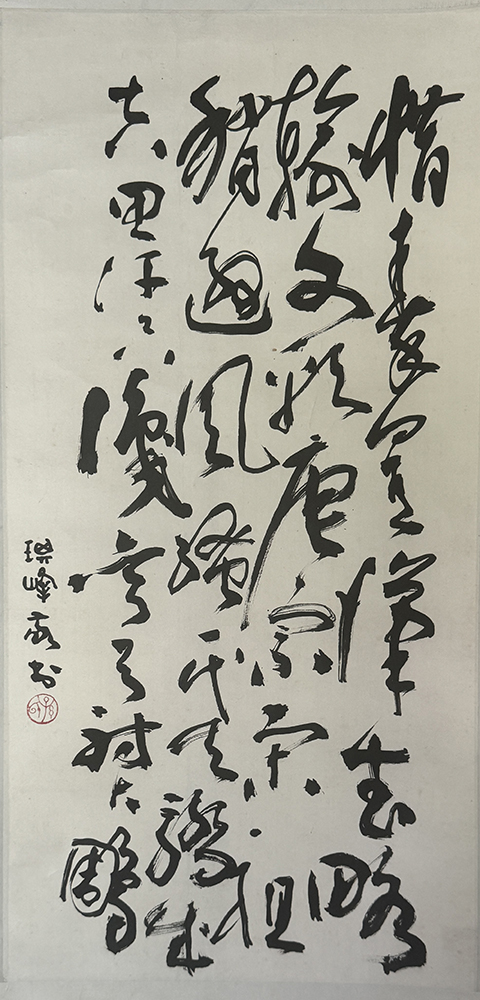 惜秦皇漢武略
輸文采唐宗宋祖
稍遜風騷一代天驕成
吉思汗只識彎弓射大鵰
峰书